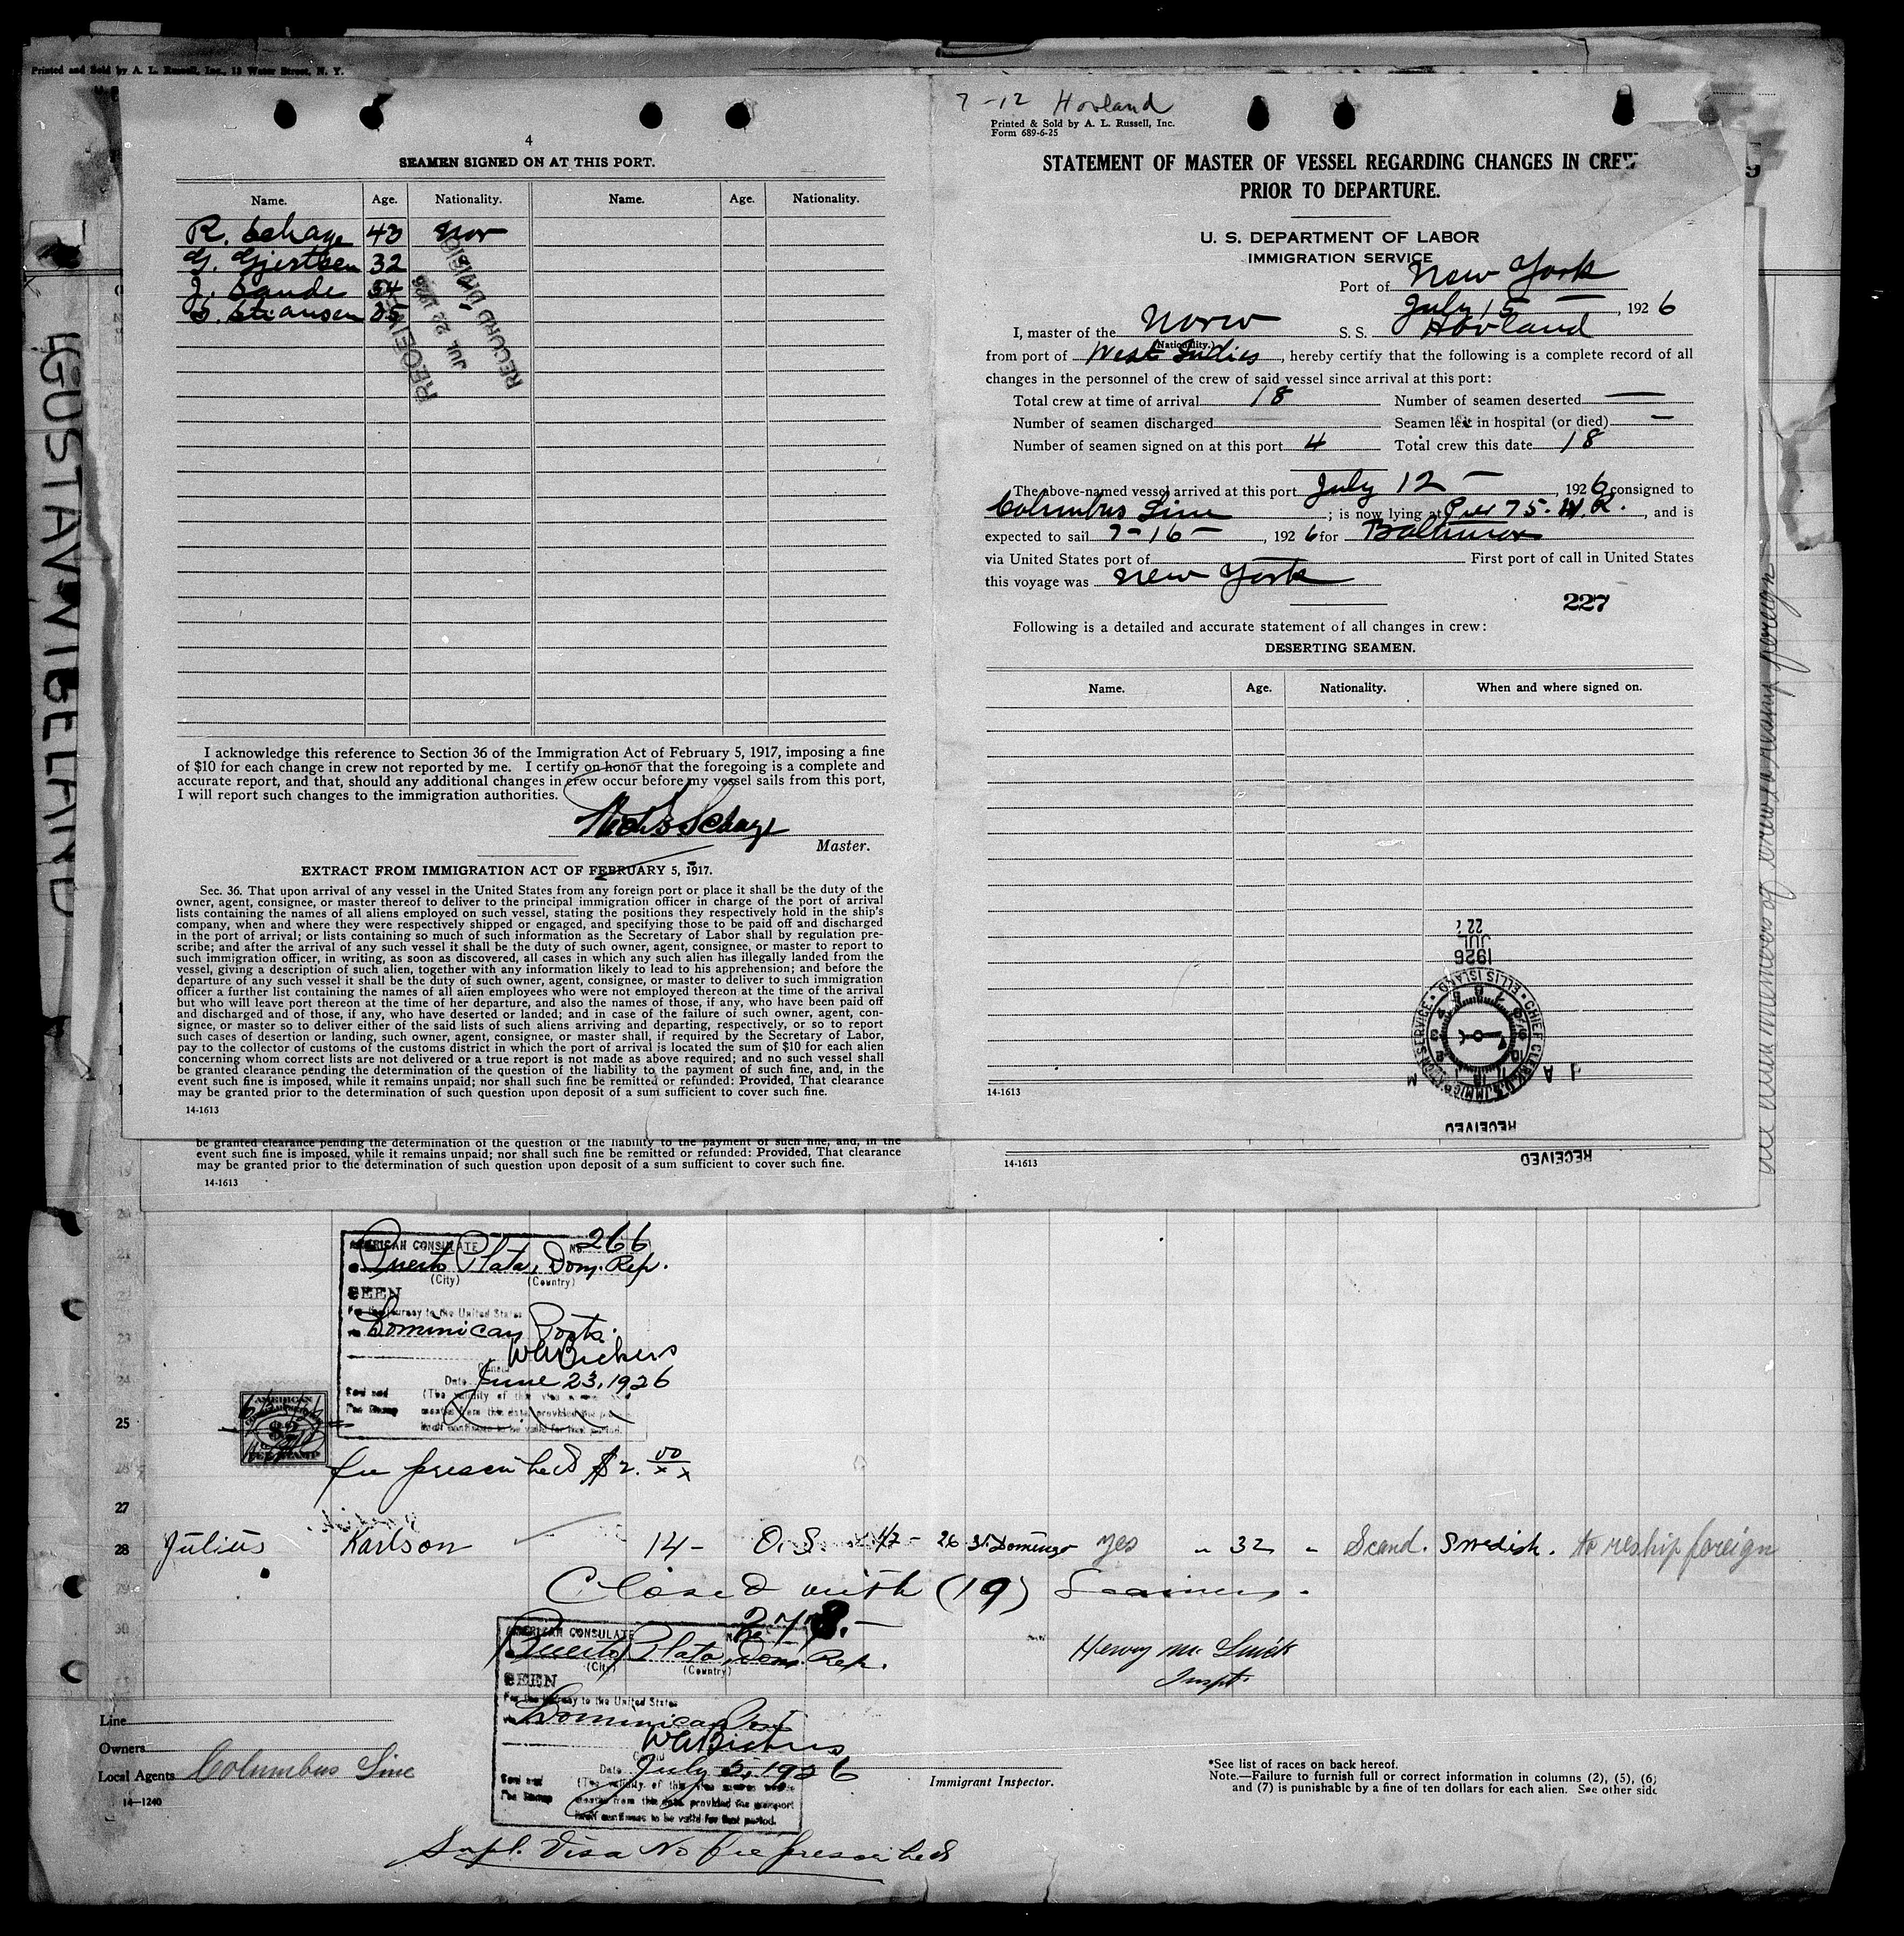 Printed and Sold by A. L. Russell, Inc., 18 Water Street, N. Y.
4
SEAMEN SIGNED ON AT THIS PORT.
Name. Age. Nationality. Name. Age. Nationality.
R. Schage 43 Nor
G. Gjertsen 32
J. Sande 34
S. Stiansen 25
RECEIVED
JUL 22 1926
RECORD DIVISION
I acknowledge this reference to Section 36 of the Immigration Act of February 5, 1917, imposing a fine
of $10 for each change in crew not reported by me. I certify on honor that the foregoing is a complete and
accurate report, and that, should any additional changes in crew occur before my vessel sails from this port,
I will report such changes to the immigration authorities.
Schage
Master.
EXTRACT FROM IMMIGRATION ACT OF FEBRUARY 5, 1917.
Sec. 36. That upon arrival of any vessel in the United States from any foreign port or place it shall be the duty of the
owner, agent, consignee, or master thereof to deliver to the principal immigration officer in charge of the port of arrival
lists containing the names of all aliens employed on such vessel, stating the positions they respectively hold in the ship's
company, when and where they were respectively shipped or engaged, and specifying those to be paid off and discharged
in the port of arrival; or lists containing so much of such information as the Secretary of Labor shall by regulation pre-
scribe; and after the arrival of any such vessel it shall be the duty of such owner, agent, consignee, or master to report to
such immigration officer, in writing, as soon as discovered, all cases in which any such alien has illegally landed from the
vessel, giving a description of such alien, together with any information likely to lead to his apprehension; and before the
departure of any such vessel it shall be the duty of such owner, agent, consignee, or master to deliver to such immigration
officer a further list containing the names of all alien employees who were not employed thereon at the time of the arrival
but who will leave port thereon at the time of her departure, and also the names of those, if any, who have been paid off
and discharged and of those, if any, who have deserted or landed; and in case of the failure of such owner, agent, con-
signee, or master so to deliver either of the said lists of such aliens arriving and departing, respectively, or so to report
such cases of desertion or landing, such owner, agent, consignee, or master shall, if required by the Secretary of Labor,
pay to the collector of customs of the customs district in which the port of arrival is located the sum of $10 for each alien
concerning whom correct lists are not delivered or a true report is not made as above required; and no such vessel shall
be granted clearance pending the determination of the question of the liability to the payment of such fine, and, in the
event such fine is imposed, while it remains unpaid; nor shall such fine be remitted or refunded: Provided, That clearance
may be granted prior to the determination of such question upon deposit of a sum sufficient to cover such fine.
14-1613
7-12 Hovland
Printed & Sold by A. L. Russell, Inc.
Form 689-6-25
STATEMENT OF MASTER OF VESSEL REGARDING CHANGES IN CREW
PRIOR TO DEPARTURE.
U. S. DEPARTMENT OF LABOR
IMMIGRATION SERVICE
Port of New York
July 15 — , 1926
I, master of the Norw S. S. Hovland
(Nationality.)
from port of West Indies, hereby certify that the following is a complete record of all
changes in the personnel of the crew of said vessel since arrival at this port:
Total crew at time of arrival 18 Number of seamen deserted —
Number of seamen discharged Seamen left in hospital (or died) —
Number of seamen signed on at this port 4 Total crew this date 18
The above-named vessel arrived at this port July 12 — , 1926 consigned to
Columbus Line ; is now lying at Pier 75. N.R. , and is
expected to sail 7-16- , 1926 for Baltimore
via United States port of First port of call in United States
this voyage was New York
227
Following is a detailed and accurate statement of all changes in crew:
DESERTING SEAMEN.
Name. Age. Nationality. When and where signed on.
1926
JUL
22
CHIEF CLERK, U.S. IMMIGRATION SERVICE • ELLIS ISLAND •
RECEIVED
14-1613
GUSTAV WIBELAND
be granted clearance pending the determination of the question of the liability to the payment of such fine, and, in the
event such fine is imposed, while it remains unpaid; nor shall such fine be remitted or refunded: Provided, That clearance
may be granted prior to the determination of such question upon deposit of a sum sufficient to cover such fine.
14-1613
14-1613
RECEIVED
members of crew
foreign
20
21
AMERICAN CONSULATE No. 266
Puerto Plata, Dom. Rep.
(City) (Country)
SEEN
For the journey to the United States
via Dominican Ports.
23
W A Bickers
24
Date June 23, 1926
AMERICAN
$2
FEE STAMP
25
26
fee prescribed $2.00
27
28 Julius Karlson 14- O. S. 26 St. Domingo yes " 32 " Scand. Swedish. to reship foreign
29
Closed with (19) Seamen.
30
AMERICAN CONSULATE No. 278.
Puerto Plata, Dom. Rep.
(City) (Country)
SEEN
For the journey to the United States
via Dominican Port
W A Bickers
Date July 5, 1926
Supl. Visa No fee prescribed
Henry
Inspt.
Immigrant Inspector.
Line
Owners
Local Agents Columbus Line
14-1240
*See list of races on back hereof.
Note.—Failure to furnish full or correct information in columns (2), (5), (6)
and (7) is punishable by a fine of ten dollars for each alien. See other side